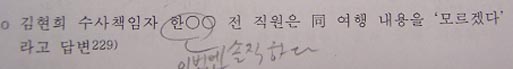 o 김현희 수사책임자 한○○ 전 직원은 同 여행 내용을 '모르겠다'
라고 답변229)
이번엔 솔직하다